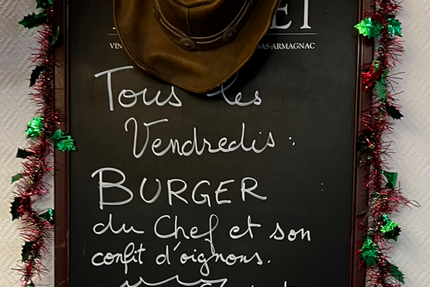 ET
VIN
BAS-ARMAGNAC
Tous les
Vendredis :
BURGER
du Chef et son
confit d'oignons.